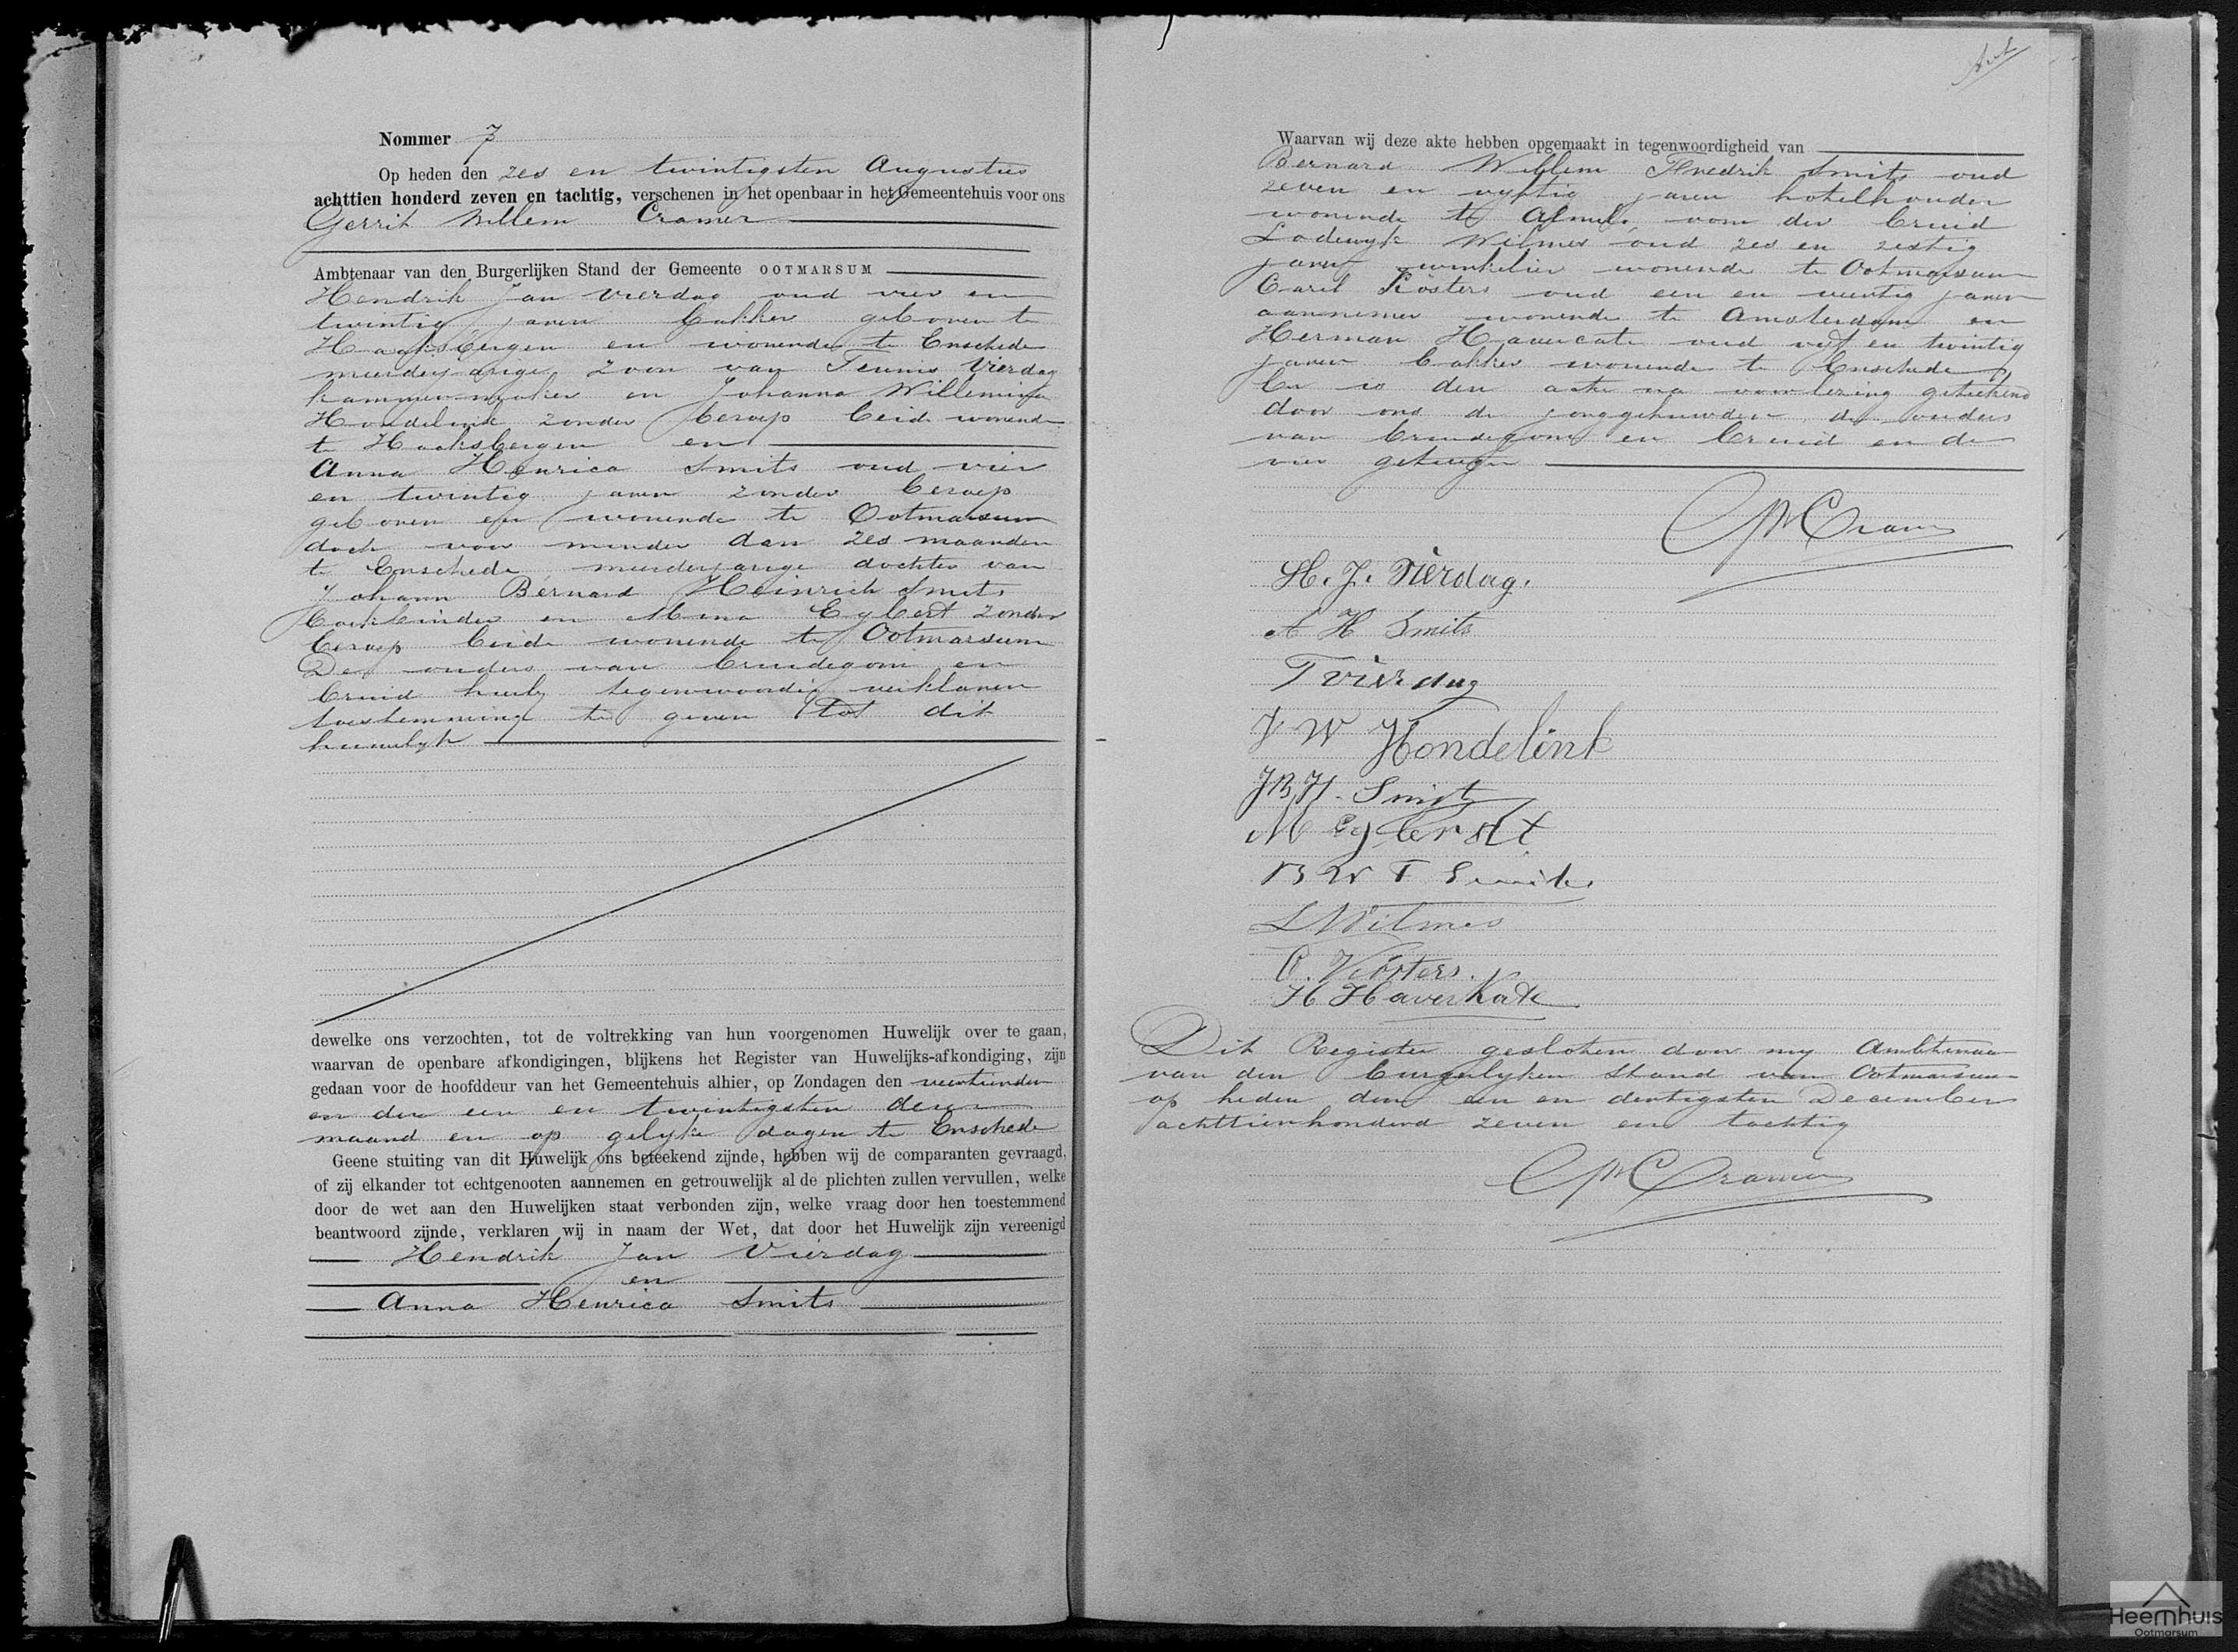 Nommer 7
Op heden den zes en twintigsten Augustus
achttien honderd zeven en tachtig, verschenen in het openbaar in het Gemeentehuis voor ons
Gerrit Willem Cramer
Ambtenaar van den Burgerlijken Stand der Gemeente OOTMARSUM
Hendrik Jan Vierdag oud vier en
twintig jaren bakker geboren te
Haaksbergen en wonende te Enschede
meerderjarige zoon van Teunis Vierdag
kammenmaker en Johanna Willemina
Hondelink zonder beroep beide wonende
te Haaksbergen en
Anna Henrica Smits oud vier
en twintig jaren zonder beroep
geboren en wonende te Ootmarsum
doch voor minder dan zes maanden
te Enschede meerderjarige dochter van
Johann Bernard Heinrich Smits
boekbinder en Mina Egbert zonder
beroep beide wonende te Ootmarsum
De ouders van bruidegom en
bruid hierby tegenwoordig verklaren
toestemming te geven tot dit
huwelyk
dewelke ons verzochten, tot de voltrekking van hun voorgenomen Huwelijk over te gaan,
waarvan de openbare afkondigingen, blijkens het Register van Huwelijks-afkondiging, zijn
gedaan voor de hoofddeur van het Gemeentehuis alhier, op Zondagen den veertienden
en den een en twintigsten dezer
maand en op gelyke dagen te Enschede
Geene stuiting van dit Huwelijk ons beteekend zijnde, hebben wij de comparanten gevraagd,
of zij elkander tot echtgenooten aannemen en getrouwelijk al de plichten zullen vervullen, welke
door de wet aan den Huwelijken staat verbonden zijn, welke vraag door hen toestemmend
beantwoord zijnde, verklaren wij in naam der Wet, dat door het Huwelijk zijn vereenigd
Hendrik Jan Vierdag
en
Anna Henrica Smits
Waarvan wij deze akte hebben opgemaakt in tegenwoordigheid van
Bernard Willem Fredrik Smits oud
zeven en vyftig jaren hotelhouder
wonende te Almelo oom der bruid
Lodewyk Wilmes oud zes en zestig
jaren winkelier wonende te Ootmarsum
Carel Kösters oud een en veertig jaren
aannemer wonende te Amsterdam en
Herman Havercate oud vyf en twintig
jaren bakker wonende te Enschede
En is den acte na voorlezing geteekend
door ons de jonggehuwden de ouders
van bruidegom en bruid en de
vier getuigen
GW Cramer
H. J. Vierdag.
A H Smits
T vierdag
J W Hondelink
J B H. Smits
M Egberst
B W F Smits
L Wilmes
C. Kösters.
H Haverkate
Dit Register gesloten door my Ambtenaar
van den burgerlyken stand van Ootmarsum
op heden den een en dertigsten December
achttienhonderd zeven en tachtig
GW Cramer
Heemhuis
Ootmarsum